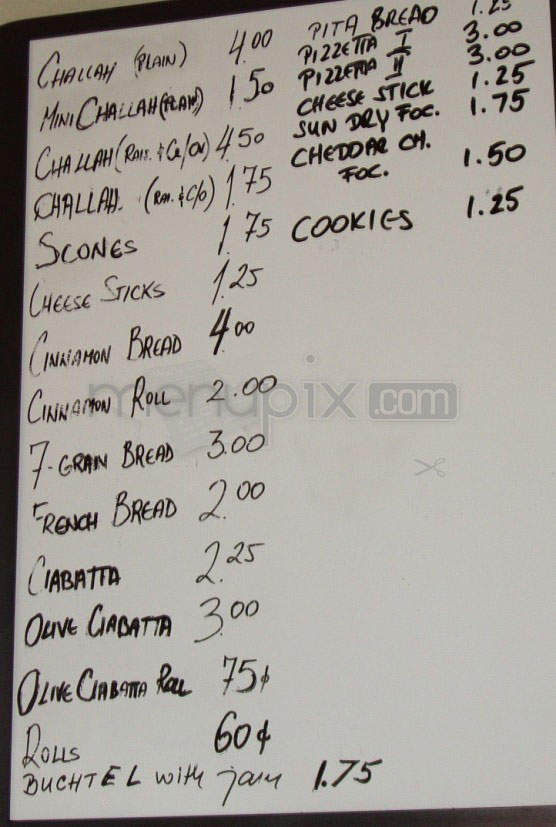 CHALLAH (PLAIN) 4.00
MINI CHALLAH (PLAIN) 1.50
CHALLAH (RAIS. & Ce/ON) 4.50
CHALLAH (RAI. & C/O) 1.75
SCONES 1.75
CHEESE STICKS 1.25
CINNAMON BREAD 4.00
CINNAMON ROLL 2.00
7-GRAIN BREAD 3.00
FRENCH BREAD 2.00
CIABATTA 2.25
OLIVE CIABATTA 3.00
OLIVE CIABATTA ROLL 75¢
ROLLS 60¢
BUCHTEL with jam 1.75
PITA BREAD 1.25
PIZZETTA I 3.00
PIZZETTA II 3.00
CHEESE STICK 1.25
SUN DRY FOC. 1.75
CHEDDAR CH.
FOC. 1.50
COOKIES 1.25
menupix.com